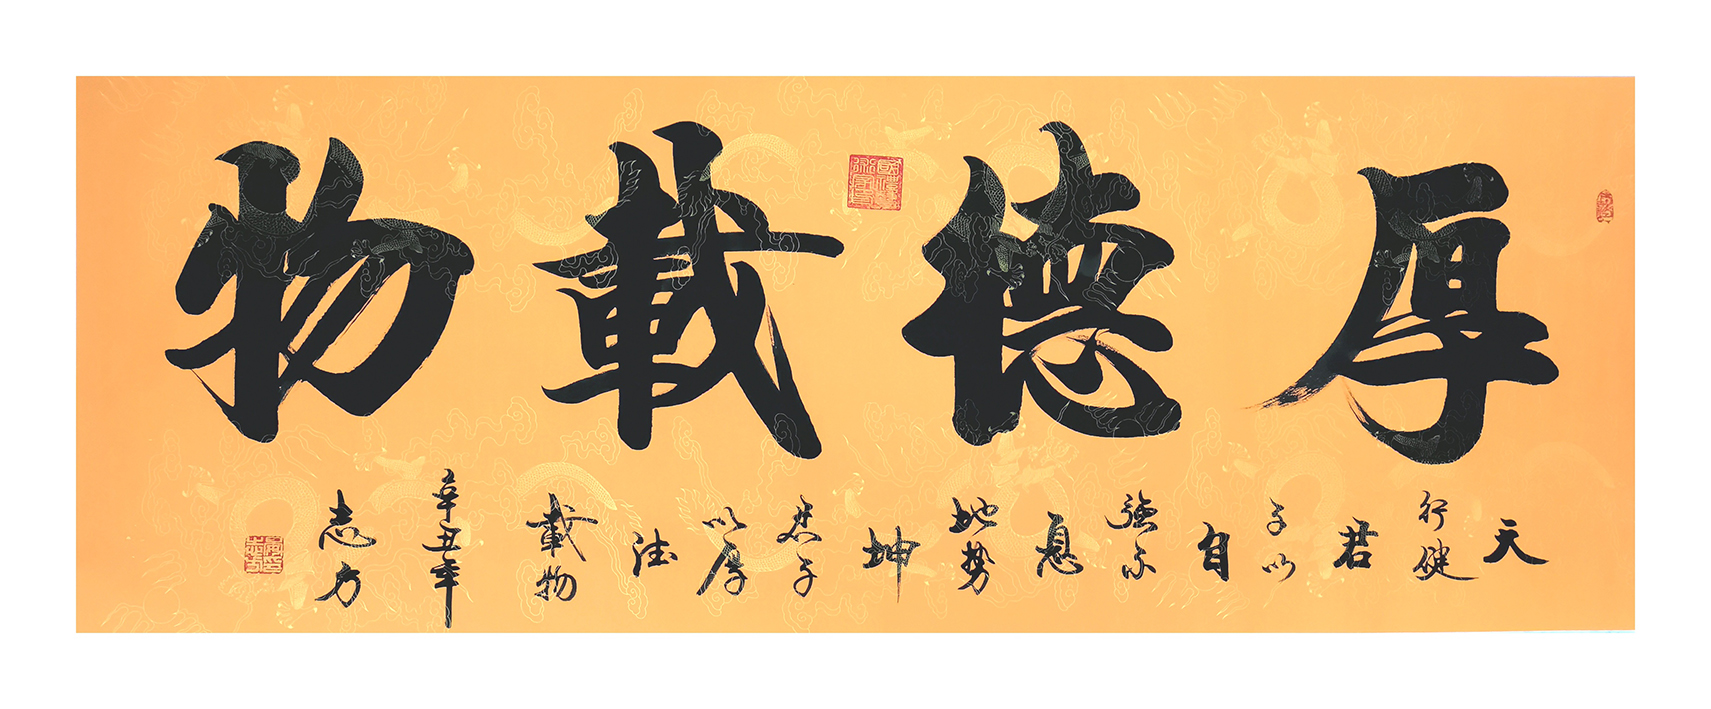 厚德載物
天
行健
君
子以
自
強不
息
地势
坤
君子
以厚
德
載物
辛丑年
志方